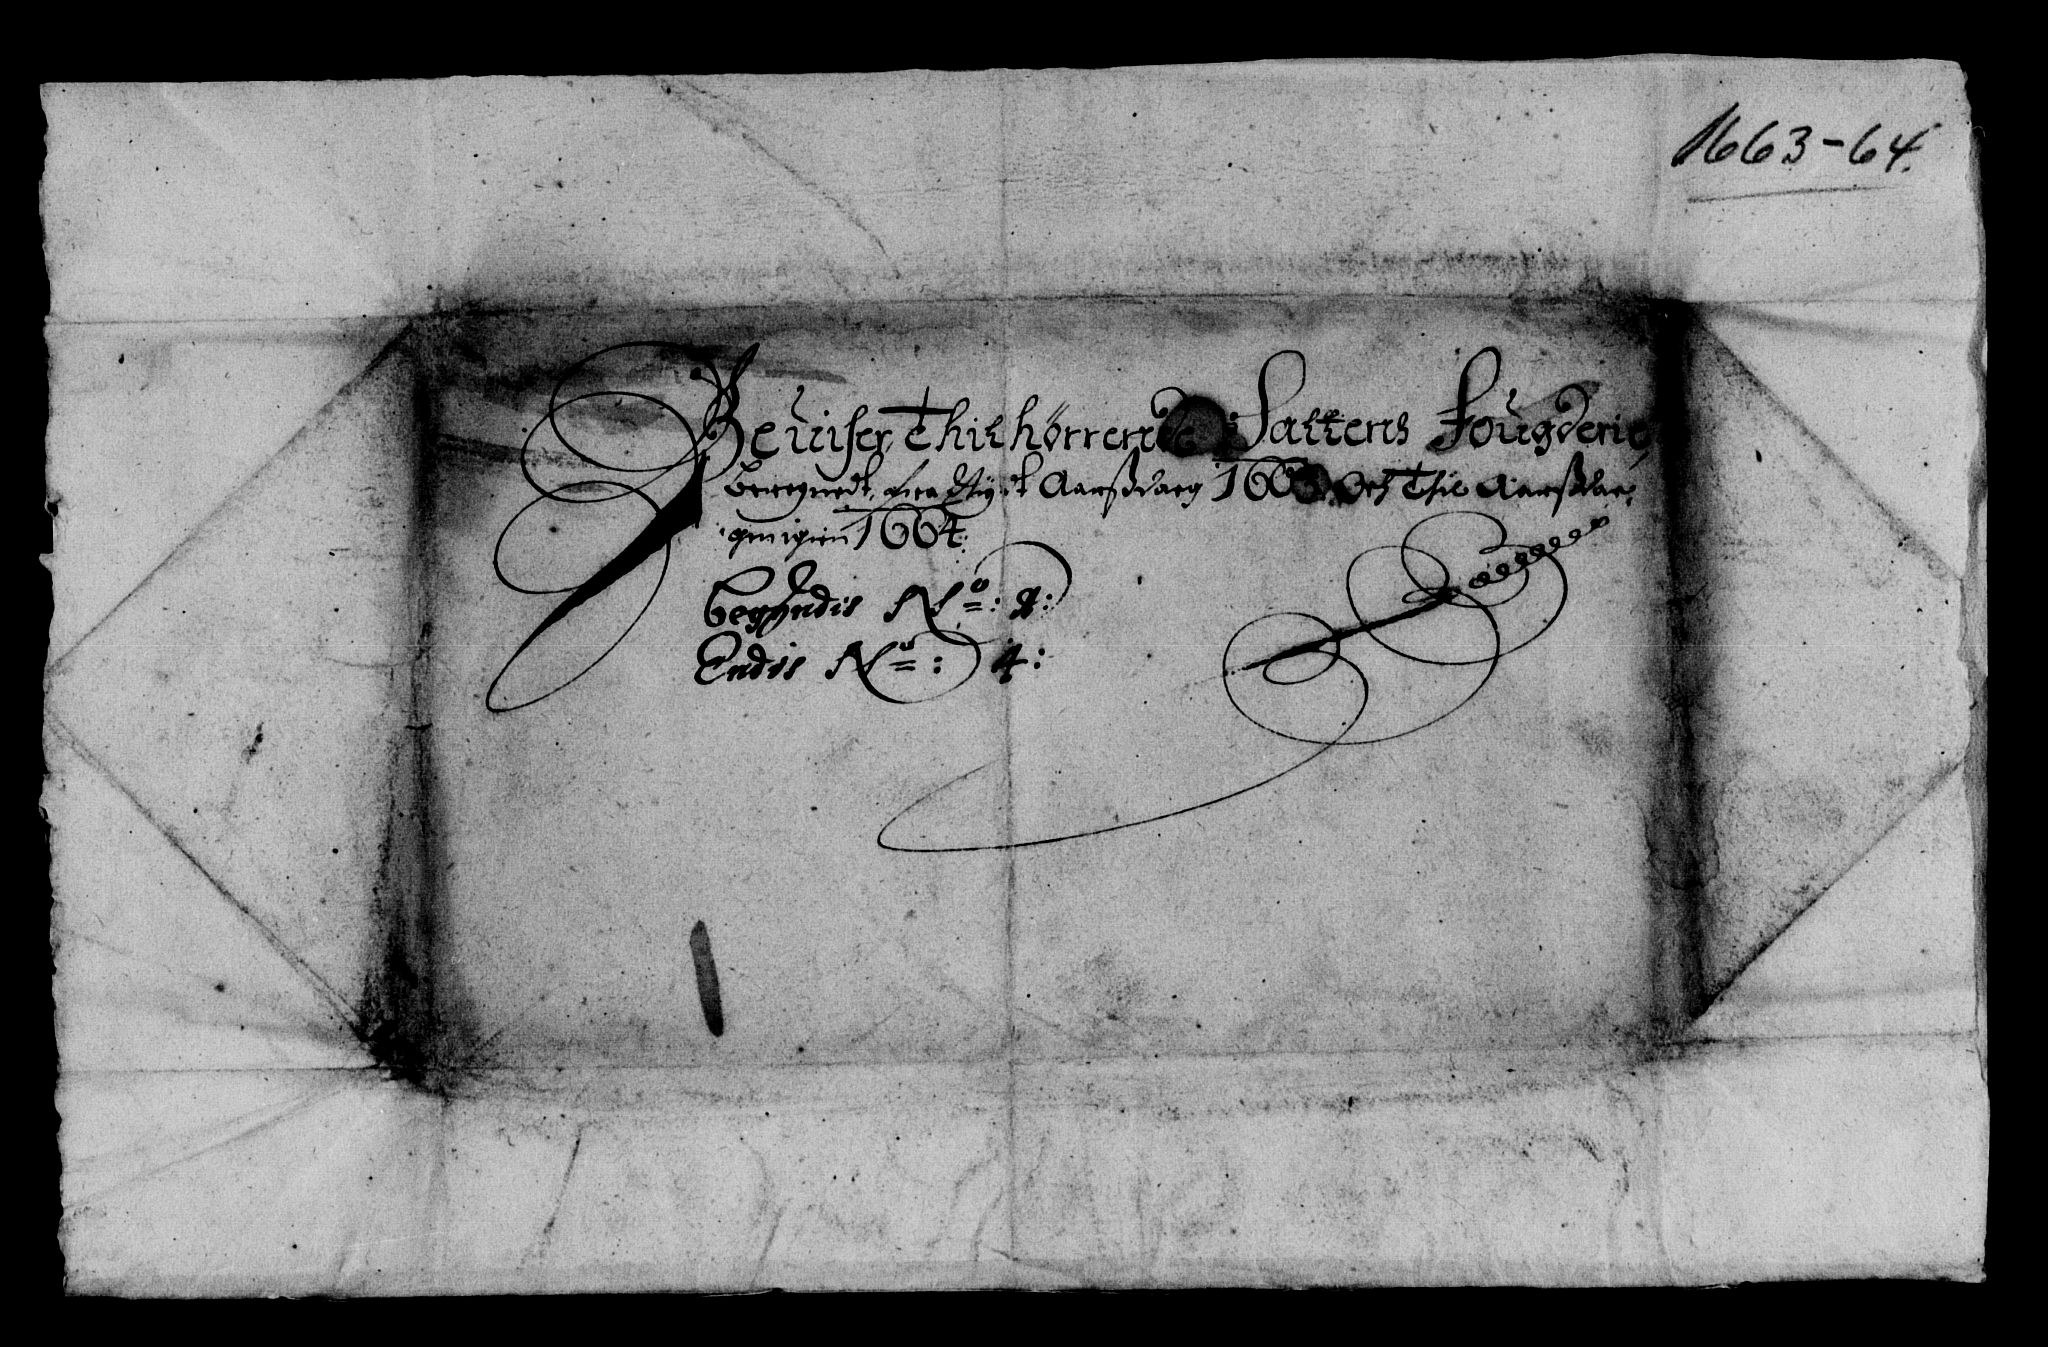 1663-64.
Beuiser Thilhørrende Saltens Fougderie
beregnedt fra Nyt Aarßdaeg 1663 Och Thil Aarßdae,
gen igien 1664.
Begyndis No: 1:
Endis No: 4: